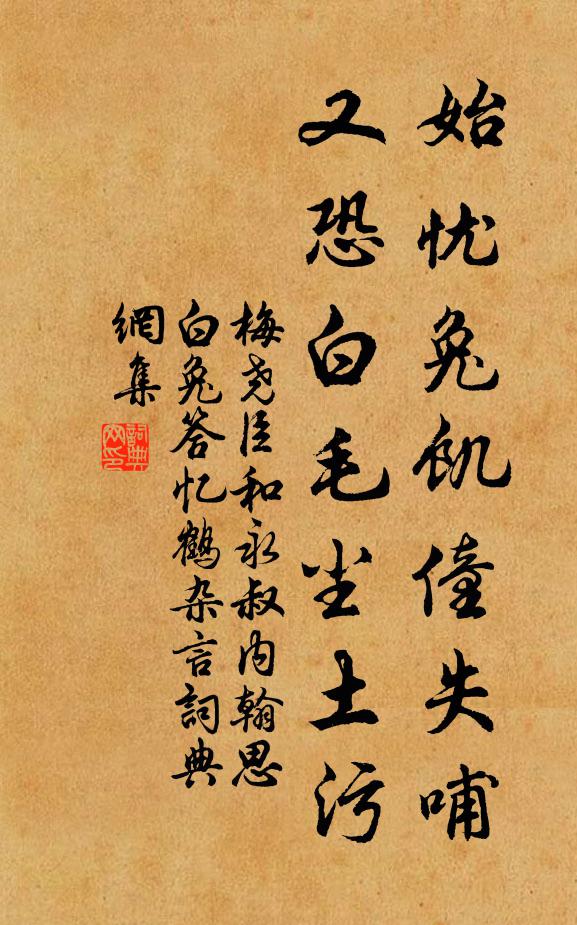 始忧兔飢僮失哺
又恐白毛尘土污
梅尧臣和永叔内翰思
白兔答忆鹤杂言詞典
網集
詞典
网印